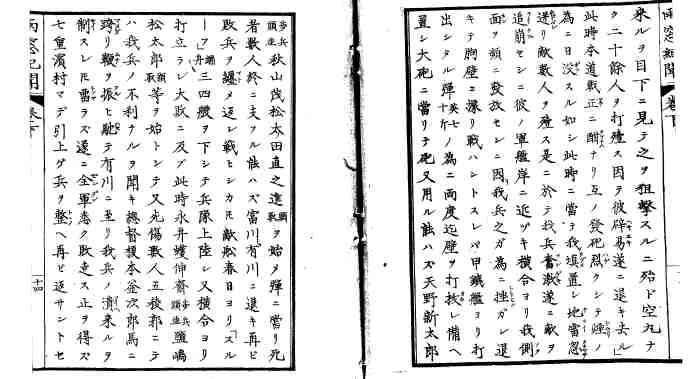 雨窓紀聞 巻下
来ルヲ目下ニ見テ之ヲ狙撃スルニ殆ド空丸ナ
ク二十餘人ヲ打殪ス因テ彼辟易遂ニ退キ去ル
此時本道戦正ニ酣ナリ互ノ發砲烈クシテ煙ノ
為ニ日没スル如シ此時ニ當テ我埋置シ地雷忽
迸リ敵数人ヲ殪ス是ニ於テ我兵奮激遂ニ敵ヲ
追崩セシニ彼ノ軍艦岸ニ近ヅキ横合ヨリ我側
面ヲ頻ニ發放セシニ因我兵之ガ為ニ挫ガレ退
キテ胸壁ニ據リ戦ハントスレバ甲鐵艦ヨリ打
出シタル弾英七十斤ノ為ニ両度迄壁ヲ打抜レ備ヘ
置シ大砲ニ當リテ砲又用ル能ハズ天野新太郎
歩兵頭並秋山茂松太田直之進頭取ヲ始メ弾ニ當リ死
者数人終ニ支フル能ハズ富川有川ニ退キ再ビ
敗兵ヲ纏メ返シ戦ヒシカモ敵船春日ヨリ「スル
ーフ」端舟三四艘ヲ下シテ兵隊上陸シ又横合ヨリ
打立ラレ大敗ニ及ブ此時永井蠖伸斎頭並嶋
松太郎頭取等ヲ始トシテ又傷数人五稜郭ニテ
ハ我兵ノ不利ナルヲ聞キ總督榎本釜次郎馬ニ
跨リ鞭ヲ振ヒ馳テ有川ニ至リ我兵ノ潰来ルヲ
制スレモ遂ニ全軍悉ク敗走ス止ヲ得ズ
七重濱村マデ引上ゲ兵ヲ整ヘ再ビ返サントセ
雨窓紀聞 巻下 十四